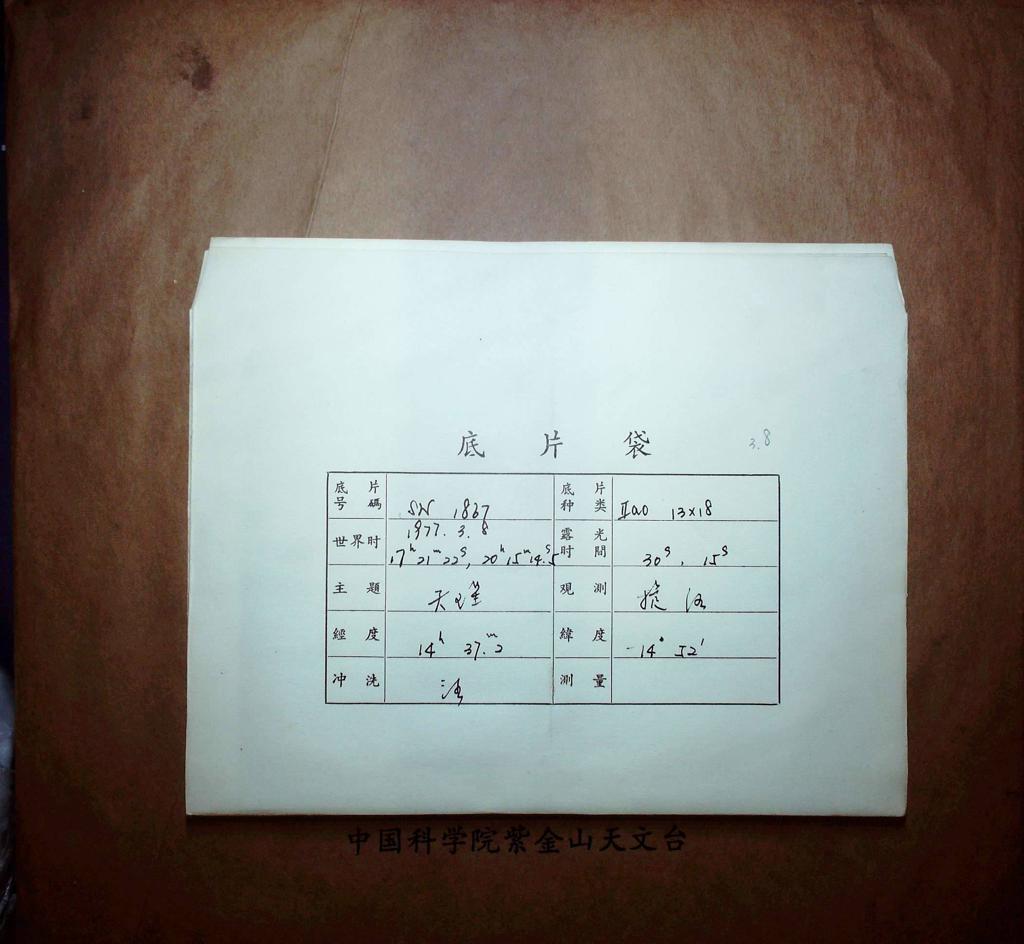 底片袋 3.8
底片号碼 SN 1837 底片种类 IIao 13×18
世界时 1977. 3. 8
17ʰ 21ᵐ 22ˢ, 20ʰ 15ᵐ 14ˢ.5 露光时間 30ˢ, 15ˢ
主題 天王星 观測
經度 14ʰ 37ᵐ.2 緯度 -14° 52′
冲洗 測量
中国科学院紫金山天文台